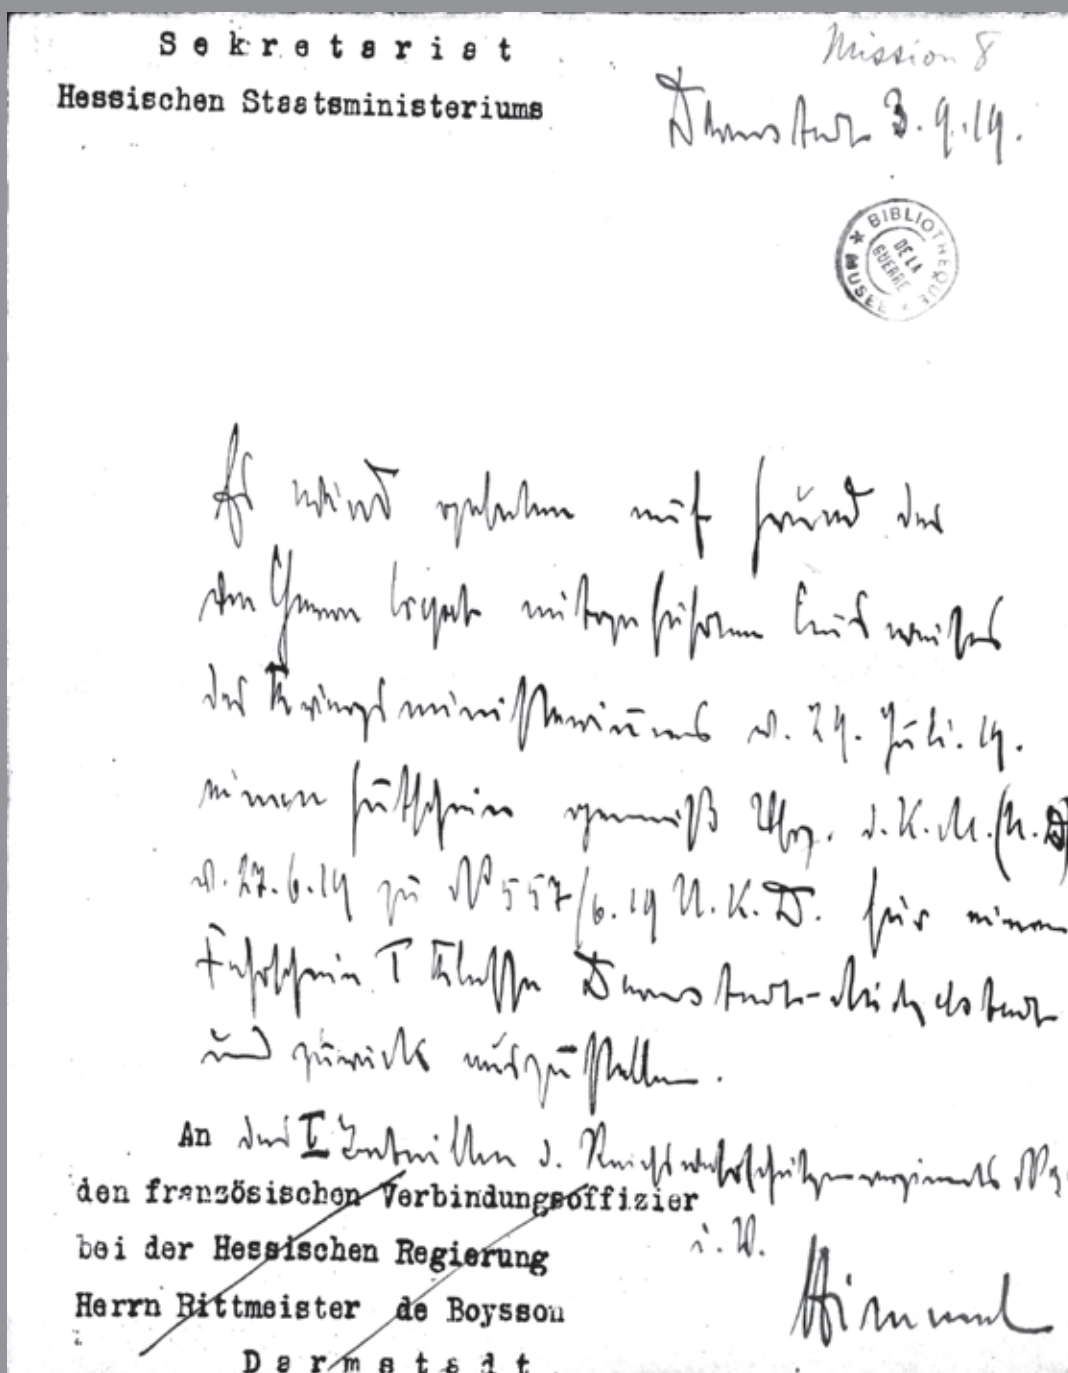 Sekretariat
Hessischen Staatsministeriums
Mission 8
Darmstadt 3.9.19.
BIBLIOTHEQUE
MUSEE
DE LA
GUERRE
Es wird gebeten auf Grund des
den Herrn mitgeführten Ausweises
des Kriegsministeriums v. 29. Juli. 19.
einen Gutschein gemäß Vfg. d. K. M. (U. D
v. 27.6.19 zu No 557/6.19 U. K. D. für einen
Fahrschein I Klasse Darmstadt-Michelstadt
und zurück auszustellen.
An das I Bataillon d. Reichswehrschützenregiments No
den französischen Verbindungsoffizier
bei der Hessischen Regierung
Herrn Rittmeister de Boysson
Darmstadt
i. V.